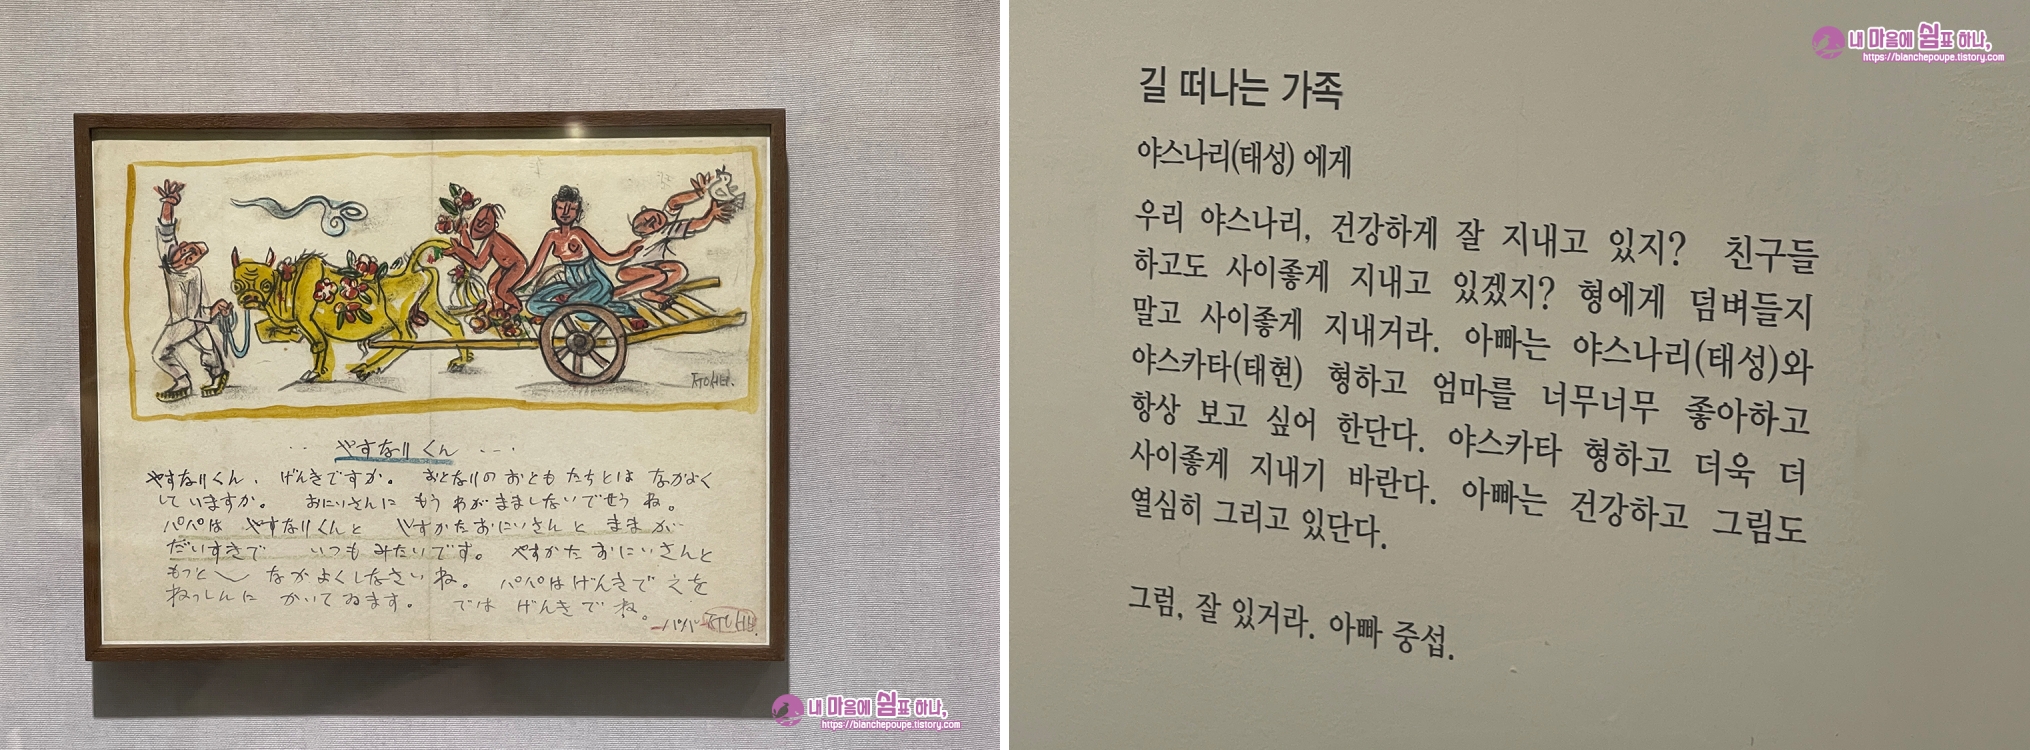 ㅈㅜㅇㅅㅓㅂ.
やすなりくん
やすなりくん、げんきですか。おとなりのおともだちとは なかよく
していますか。おにいさんに もう わがまましないでせうね。
パパは やすなりくんと やすかたおにいさんと ままが
だいすきで いつも みたいです。やすかた おにいさんと
もっと なかよくしなさいね。パパはげんきで えを
ねっしんに かいてゐます。では げんきでね。
パパ ㅈㅜㅇㅅㅓㅂ.
내 마음에 쉼표 하나,
https://blanchepoupe.tistory.com
내 마음에 쉼표 하나,
https://blanchepoupe.tistory.com
길 떠나는 가족
야스나리(태성) 에게
우리 야스나리, 건강하게 잘 지내고 있지? 친구들
하고도 사이좋게 지내고 있겠지? 형에게 덤벼들지
말고 사이좋게 지내거라. 아빠는 야스나리(태성)와
야스카타(태현) 형하고 엄마를 너무너무 좋아하고
항상 보고 싶어 한단다. 야스카타 형하고 더욱 더
사이좋게 지내기 바란다. 아빠는 건강하고 그림도
열심히 그리고 있단다.
그럼, 잘 있거라. 아빠 중섭.